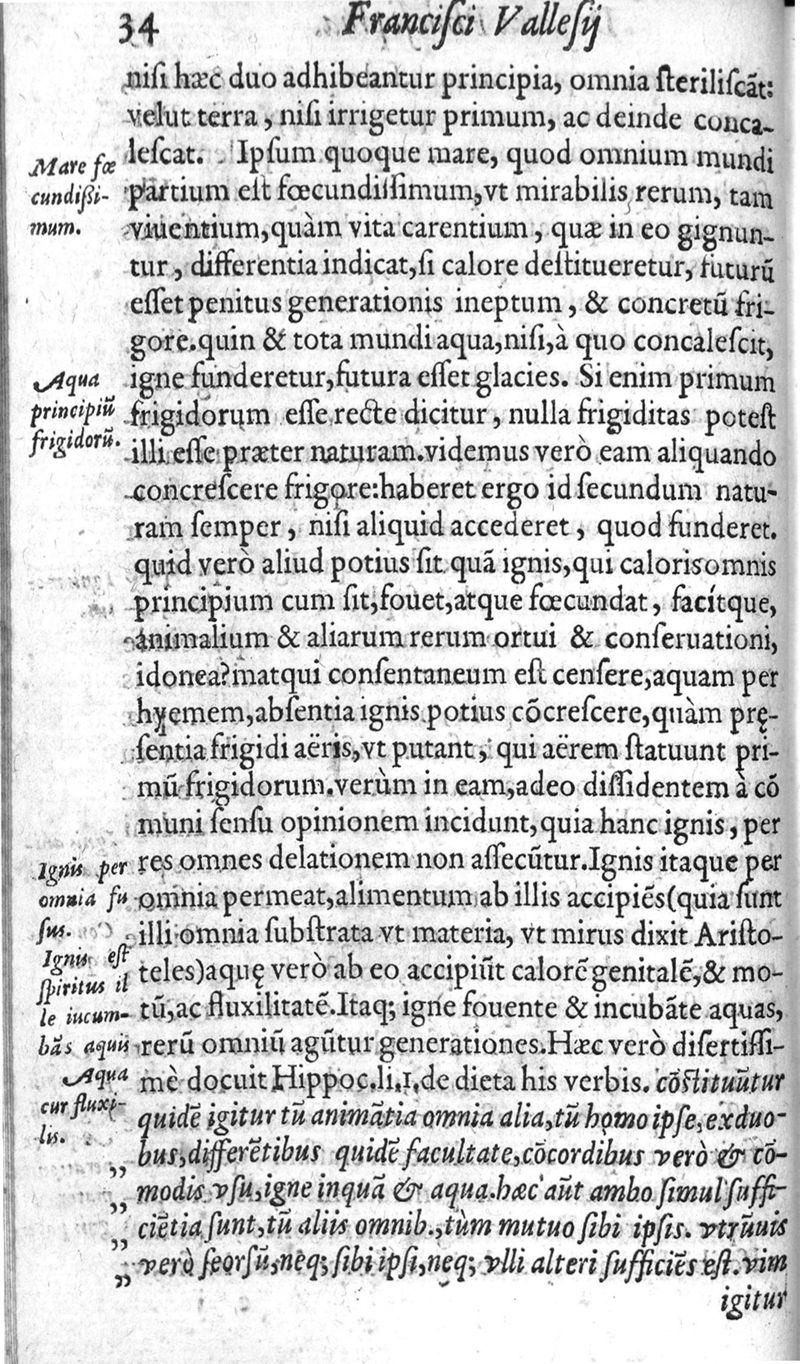 34 Franciſci Valleſij
niſi hæc duo adhibeantur principia, omnia ſteriliſcãt:
velut terra, niſi irrigetur primum, ac deinde conca-
leſcat. Ipſum quoque mare, quod omnium mundi
Mare fœ
cundißi-
mum.
partium eſt fœcundiſſimum, vt mirabilis rerum, tam
viuentium, quàm vita carentium, quæ in eo gignun-
tur, differentia indicat, ſi calore deſtitueretur, futurũ
eſſet penitus generationis ineptum, & concretũ fri-
gore. quin & tota mundi aqua, niſi, à quo concaleſcit,
igne funderetur, futura eſſet glacies. Si enim primum
Aqua
principiũ
frigidorũ.
frigidorum eſſe recte dicitur, nulla frigiditas poteſt
illi eſſe præter naturam. videmus verò eam aliquando
concreſcere frigore: haberet ergo id ſecundum natu-
ram ſemper, niſi aliquid accederet, quod funderet.
quid verò aliud potius ſit quã ignis, qui caloris omnis
principium cum ſit, fouet, atque fœcundat, facítque,
animalium & aliarum rerum ortui & conſeruationi,
idonea? matqui conſentaneum eſt cenſere, aquam per
hyemem, abſentia ignis potius cõcreſcere, quàm prę-
ſentia frigidi aëris, vt putant, qui aërem ſtatuunt pri-
mũ frigidorum. verùm in eam, adeo diſſidentem à cõ
muni ſenſu opinionem incidunt, quia hanc ignis, per
res omnes delationem non aſſecũtur. Ignis itaque per
Ignis per
omnia fu
ſus.
omnia permeat, alimentum ab illis accipiẽs (quia ſunt
illi omnia ſubſtrata vt materia, vt mirus dixit Ariſto-
Ignis eſt
ſpiritus il
le iucum-
bãs aquis
teles) aquę verò ab eo accipiũt calorẽ genitalẽ, & mo-
tũ, ac fluxilitatẽ. Itaq; igne fouente & incubãte aquas,
rerũ omniũ agũtur generationes. Hæc verò diſertiſſi-
Aqua
cur fluxi-
lis.
mè docuit Hippoc. li. 1. de dieta his verbis. cõſtituũtur
quidẽ igitur tũ animãtia omnia alia, tũ homo ipſe, ex duo-
„ bus, differẽtibus quidẽ facultate, cõcordibus verò & cõ-
„ modis vſu, igne inquã & aqua. hæc aũt ambo ſimul ſuffi-
„ ciẽtia ſunt, tũ aliis omnib., tùm mutuo ſibi ipſis. vtrũuis
„ verò ſeorſũ, neq; ſibi ipſi, neq; vlli alteri ſufficiẽs eſt. vim
„
igitur